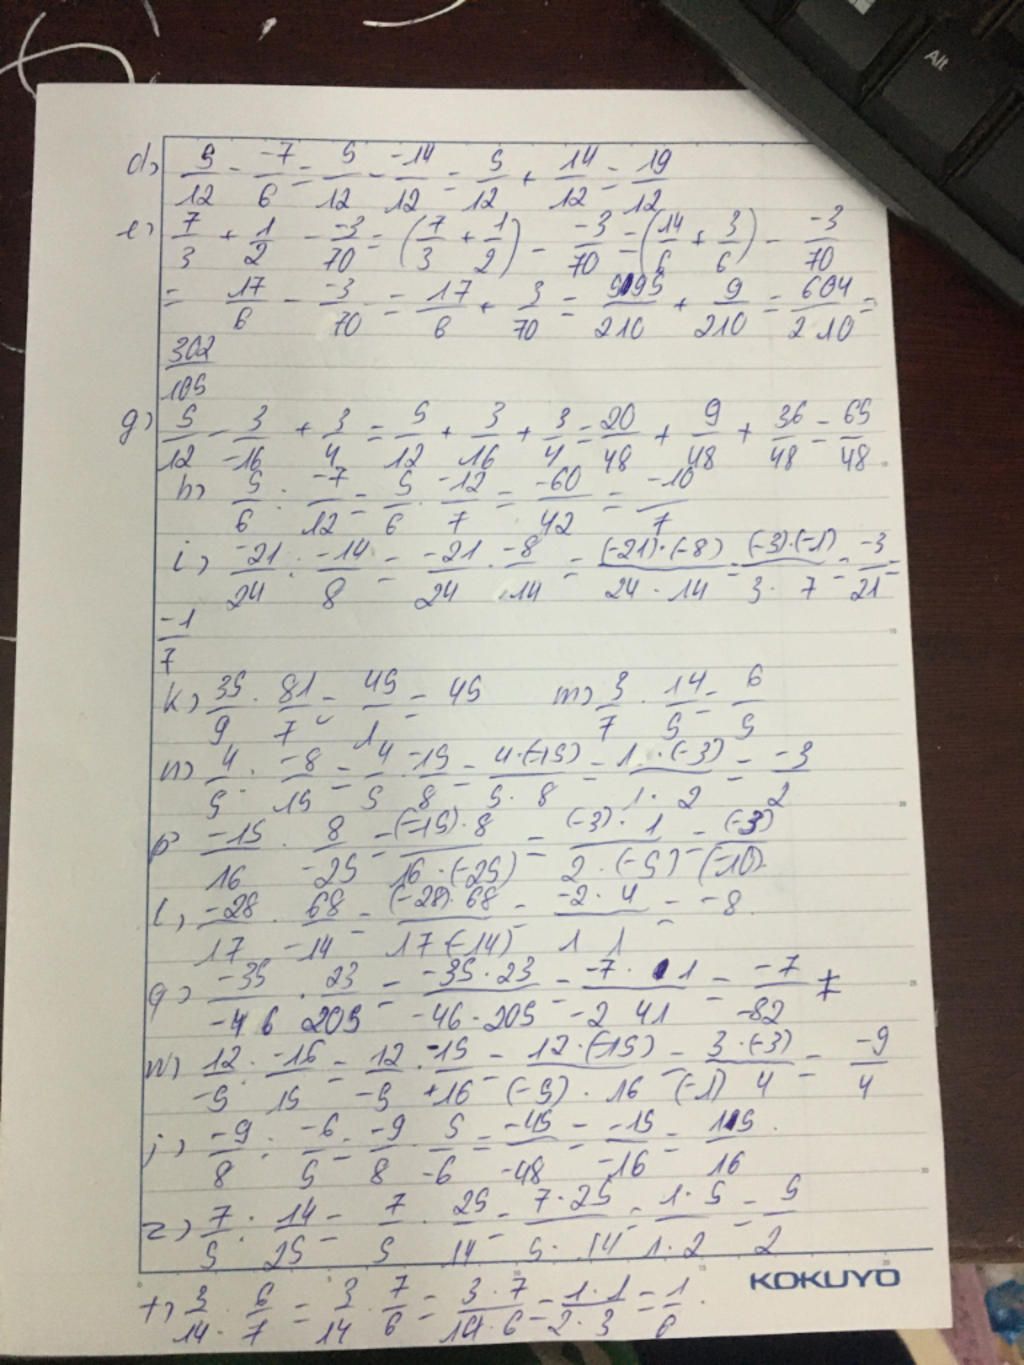 Alt
d) 5/12 - -7/6 = 5/12 - -14/12 = 5/12 + 14/12 = 19/12
e) 7/3 + 1/2 - -3/70 = (7/3 + 1/2) - -3/70 = (14/6 + 3/6) - -3/70
= 17/6 - -3/70 = 17/6 + 3/70 = 595/210 + 9/210 = 604/210 =
302/105
g) 5/12 - 3/-16 + 3/4 = 5/12 + 3/16 + 3/4 = 20/48 + 9/48 + 36/48 = 65/48
h) 5/6 : -7/12 = 5/6 . -12/7 = -60/42 = -10/7
i) -21/24 : -14/8 = -21/24 . -8/14 = (-21).(-8)/24.14 = (-3).(-1)/3.7 = -3/21 =
-1/7
k) 35/9 . 81/7 = 45/1 = 45 m) 3/7 . 14/5 = 6/5
n) 4/5 : -8/15 = 4/5 . -15/8 = 4.(-15)/5.8 = 1.(-3)/1.2 = -3/2
p) -15/16 . 8/-25 = (-15).8/16.(-25) = (-3).1/2.(-5) = (-3)/(-10)
l) -28/17 . 68/-14 = (-28).68/17(-14) = -2.4/1 1 = -8
q) -35/-46 . 23/205 = -35.23/-46.205 = -7.1/-2 41 = -7/-82
w) 12/-5 : -16/15 = 12/-5 . -15/+16 = 12.(-15)/(-5).16 = 3.(-3)/(-1) 4 = -9/4
j) -9/8 : -6/5 = -9/8 . 5/-6 = -45/-48 = -15/-16 = 15/16
z) 7/5 : 14/25 = 7/5 . 25/14 = 7.25/5.14 = 1.5/1.2 = 5/2
KOKUYO
t) 3/14 . 6/7 = 3/14 . 7/6 = 3.7/14.6 = 1.1/2.3 = 1/6